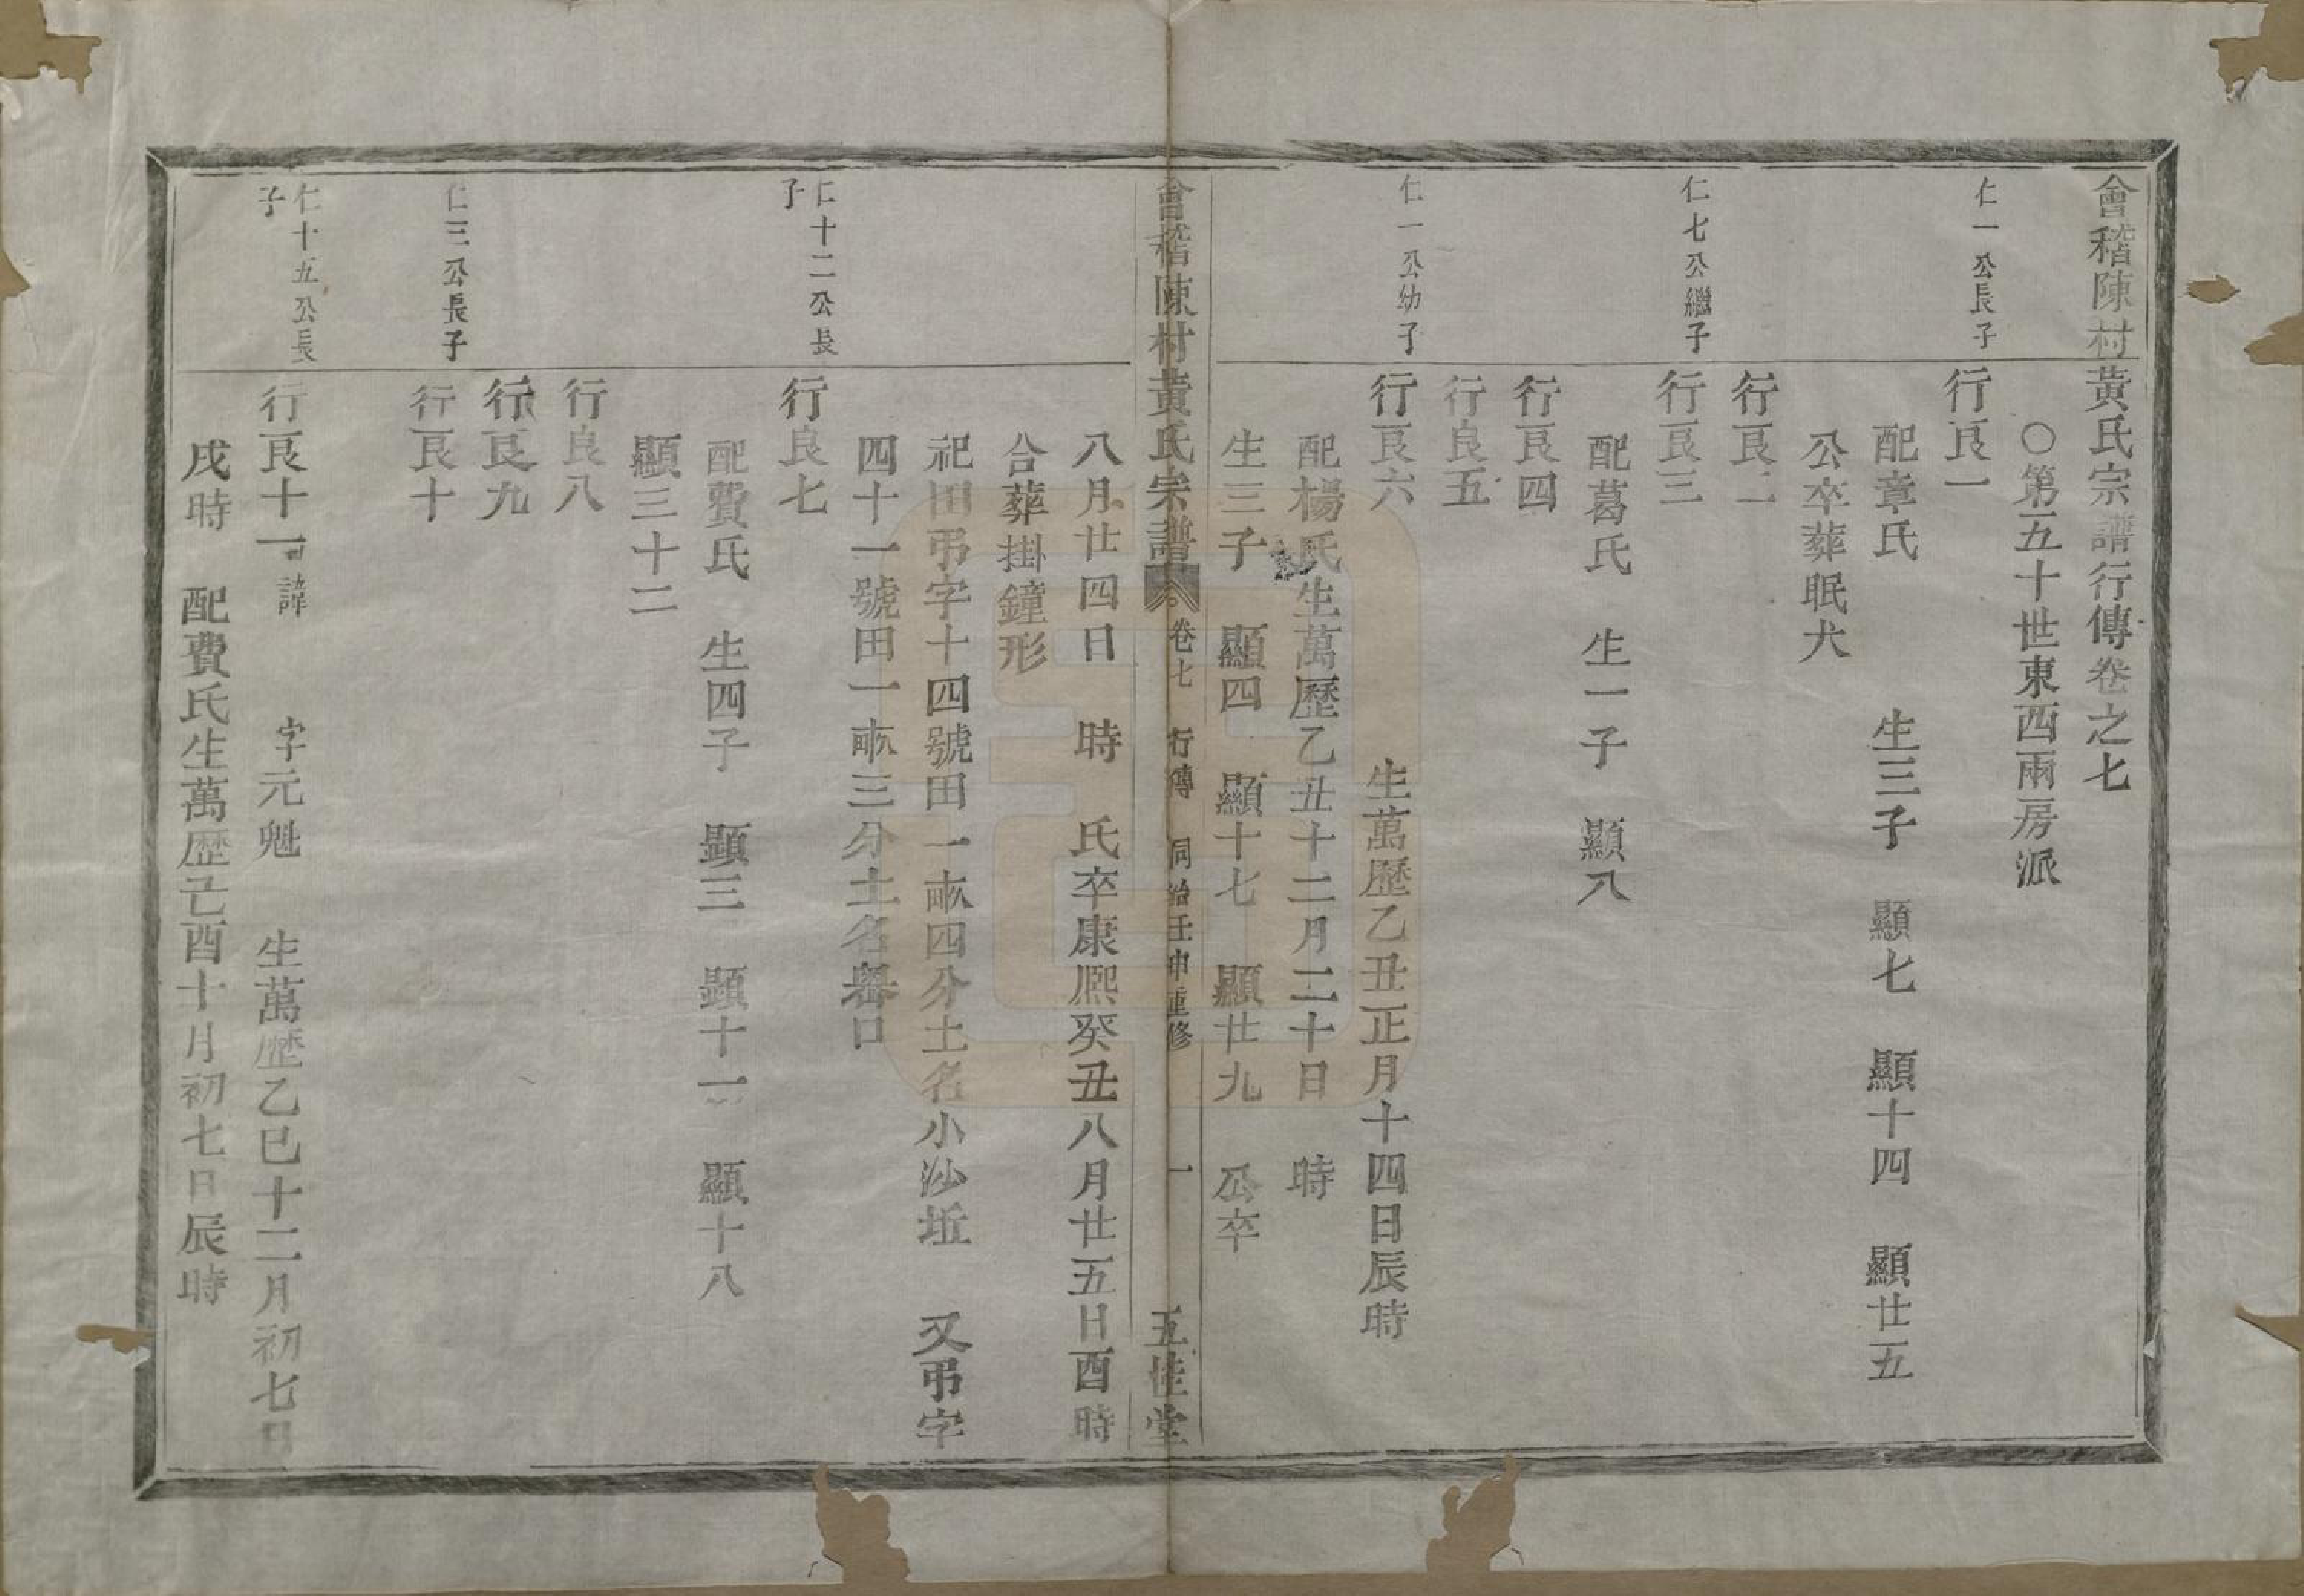 會稽陳村黃氏宗譜行傳卷之七
○第五十世東西兩房派
仁一公長子
行良一
配章氏 生三子 顯七 顯十四 顯廿五
公卒葬眠犬
行良二
仁七公繼子
行良三
配葛氏 生一子 顯八
行良四
行良五
仁一公幼子
行良六 生萬歷乙丑正月十四日辰時
配楊氏生萬歷乙丑十二月二十日 時
生三子 顯四 顯十七 顯廿九 公卒
會稽陳村黃氏宗譜 卷七 行傳 同治壬申重修 一 五桂堂
八月廿四日 時 氏卒康熙癸丑八月廿五日酉時
合葬掛鐘形
祀田弔字十四號田一畝四分土名小沙坵 又弔字
四十一號田一畝三分土名嶴口
仁十二公長子
行良七
配費氏 生四子 顯三 顯十一 顯十八
顯三十二
行良八
行良九
仁三公長子
行良十
仁十五公長子
行良十一 諱 字元魁 生萬歷乙巳十二月初七日
戌時 配費氏生萬歷己酉十月初七日辰時